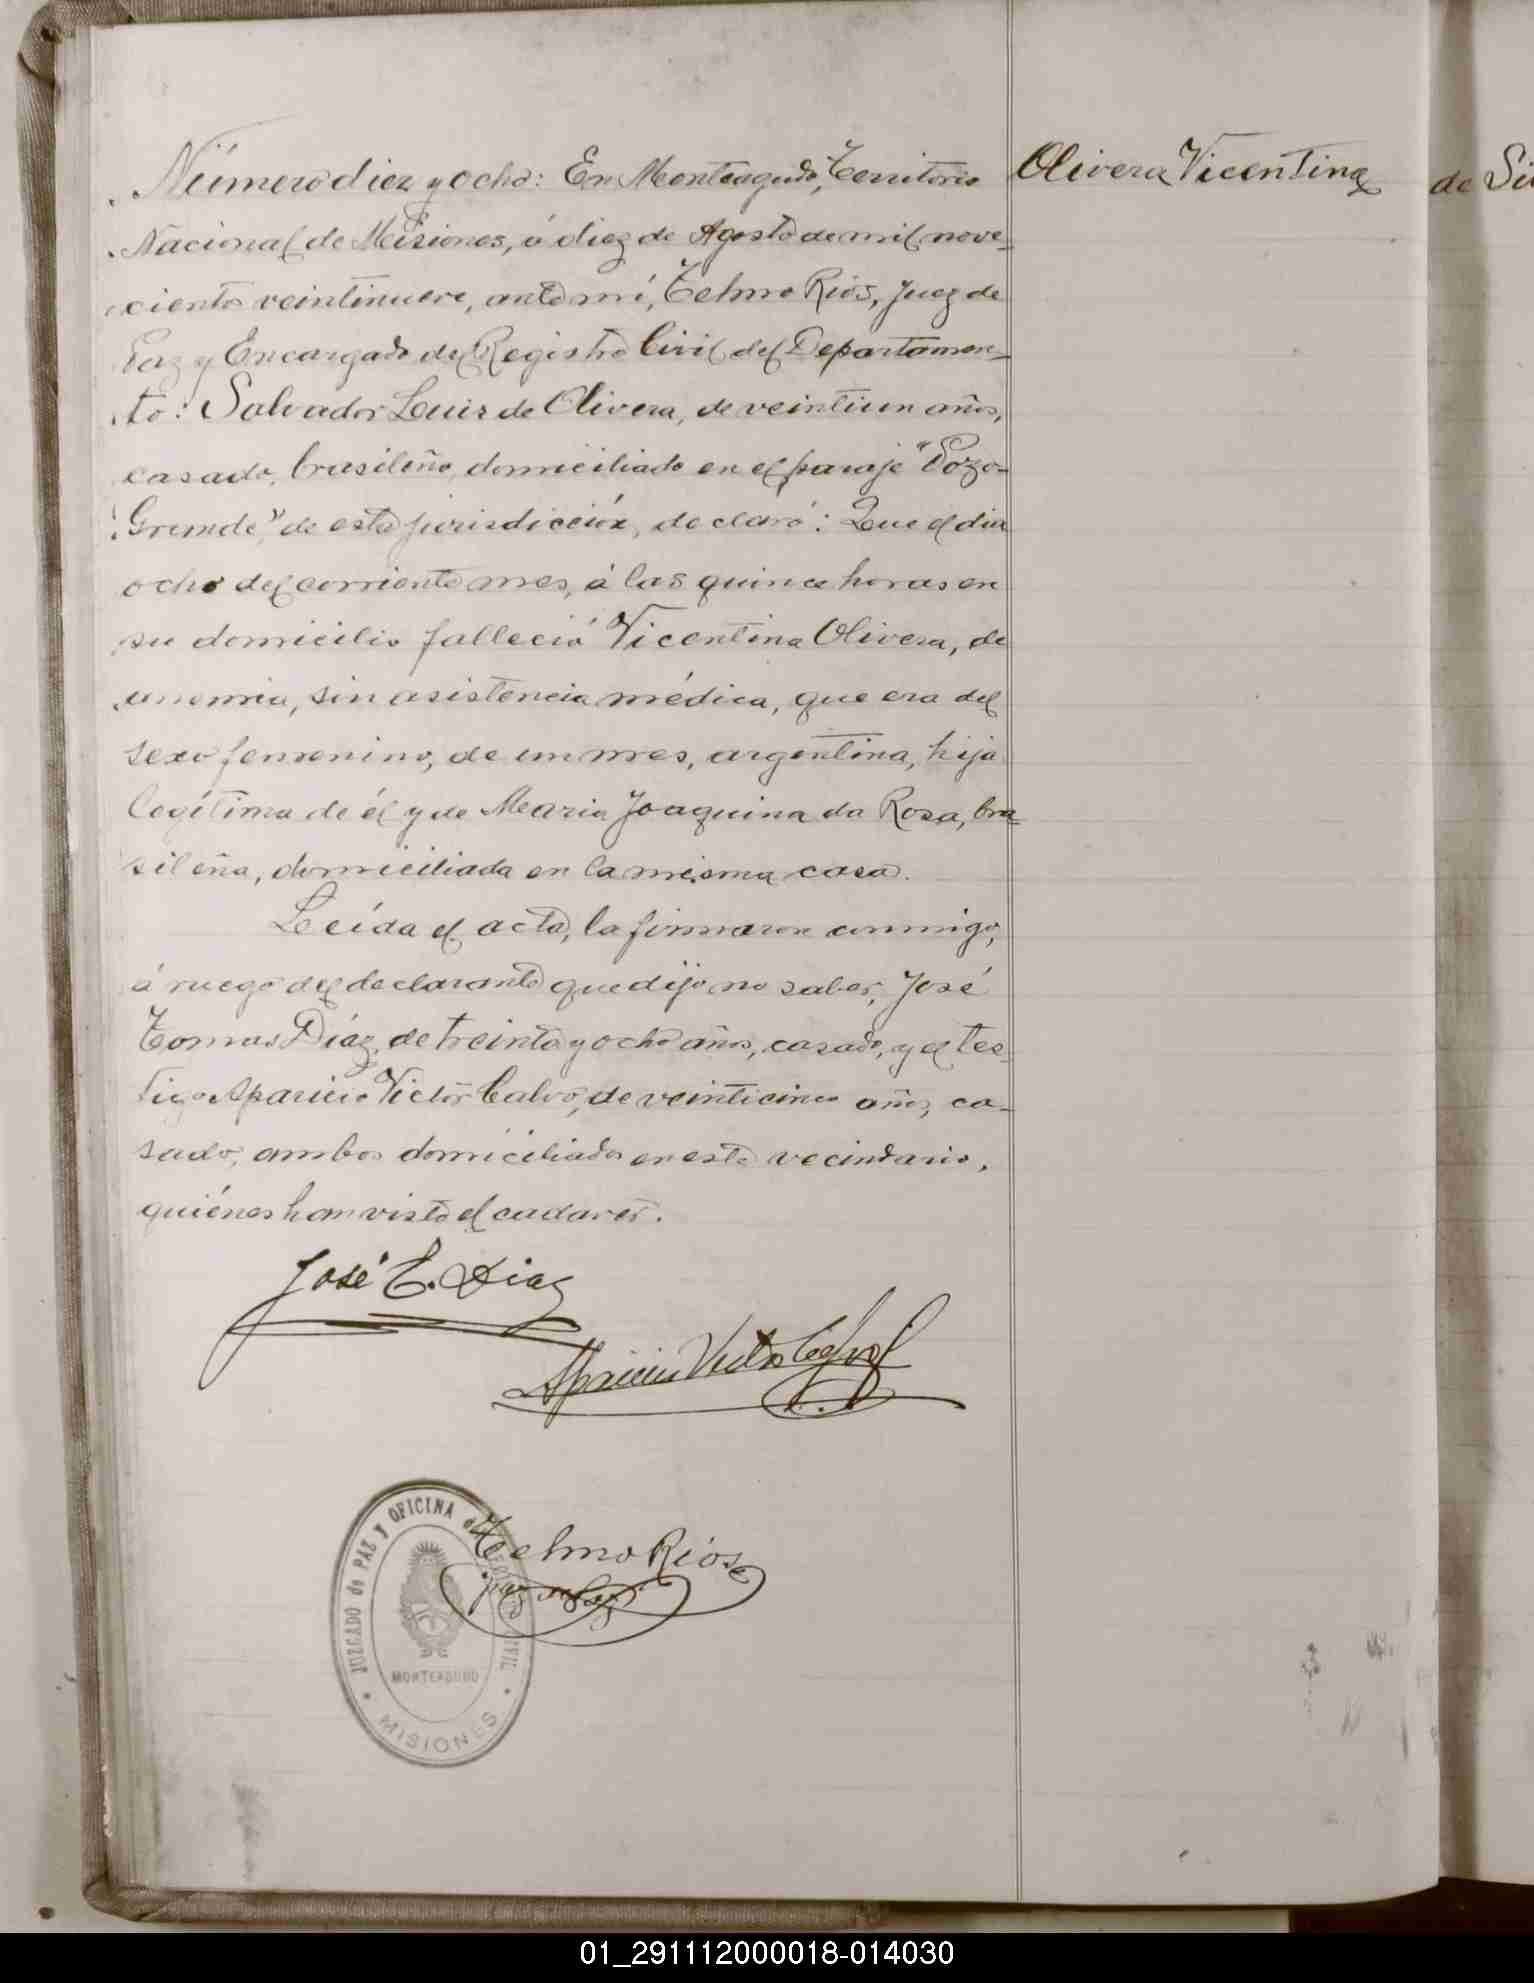 Número diez y ocho: En Monteagudo, Territorio
Nacional de Misiones, á diez de Agosto de mil nove-
cientos veintinueve, ante mí, Telmo Rios, Juez de
Paz y Encargado del Registro Civil del Departamen-
to: Salvador Luis de Olivera, de veintiun años,
casado, brasileño, domiciliado en el paraje "Pozo-
Grande," de esta jurisdicción, declaró: Que el dia
ocho del corriente mes, á las quince horas en
su domicilio falleció Vicentina Olivera, de
anemia, sin asistencia médica, que era del
sexo femenino, de un mes, argentina, hija
legítima de él y de Maria Joaquina da Rosa, bra-
sileña, domiciliada en la misma casa.
Leída el acta, la firmaron conmigo,
á ruego del declarante que dijo no saber, José
Tomas Díaz, de treinta y ocho años, casado, y el tes-
tigo Aparicio Victor Calvo, de veinticinco años, ca-
sado, ambos domiciliados en este vecindario,
quiénes han visto el cadaver.
Olivera Vicentina
de
José T. Diaz
Aparicio Victor Calvo
Telmo Rios
Juez de Paz
JUZGADO de PAZ y OFICINA del REGISTRO CIVIL
MONTEAGUDO
MISIONES
01_291112000018-014030